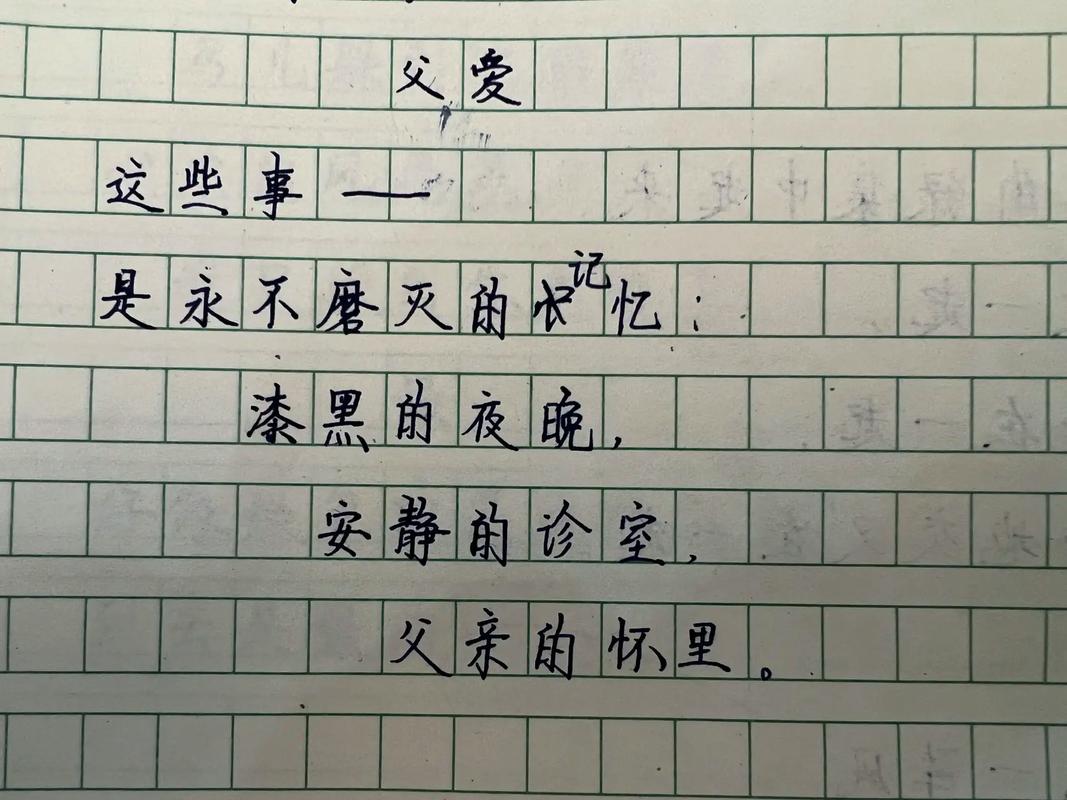 父爱
这些事——
是永不磨灭的记忆：
漆黑的夜晚，
安静的诊室，
父亲的怀里。